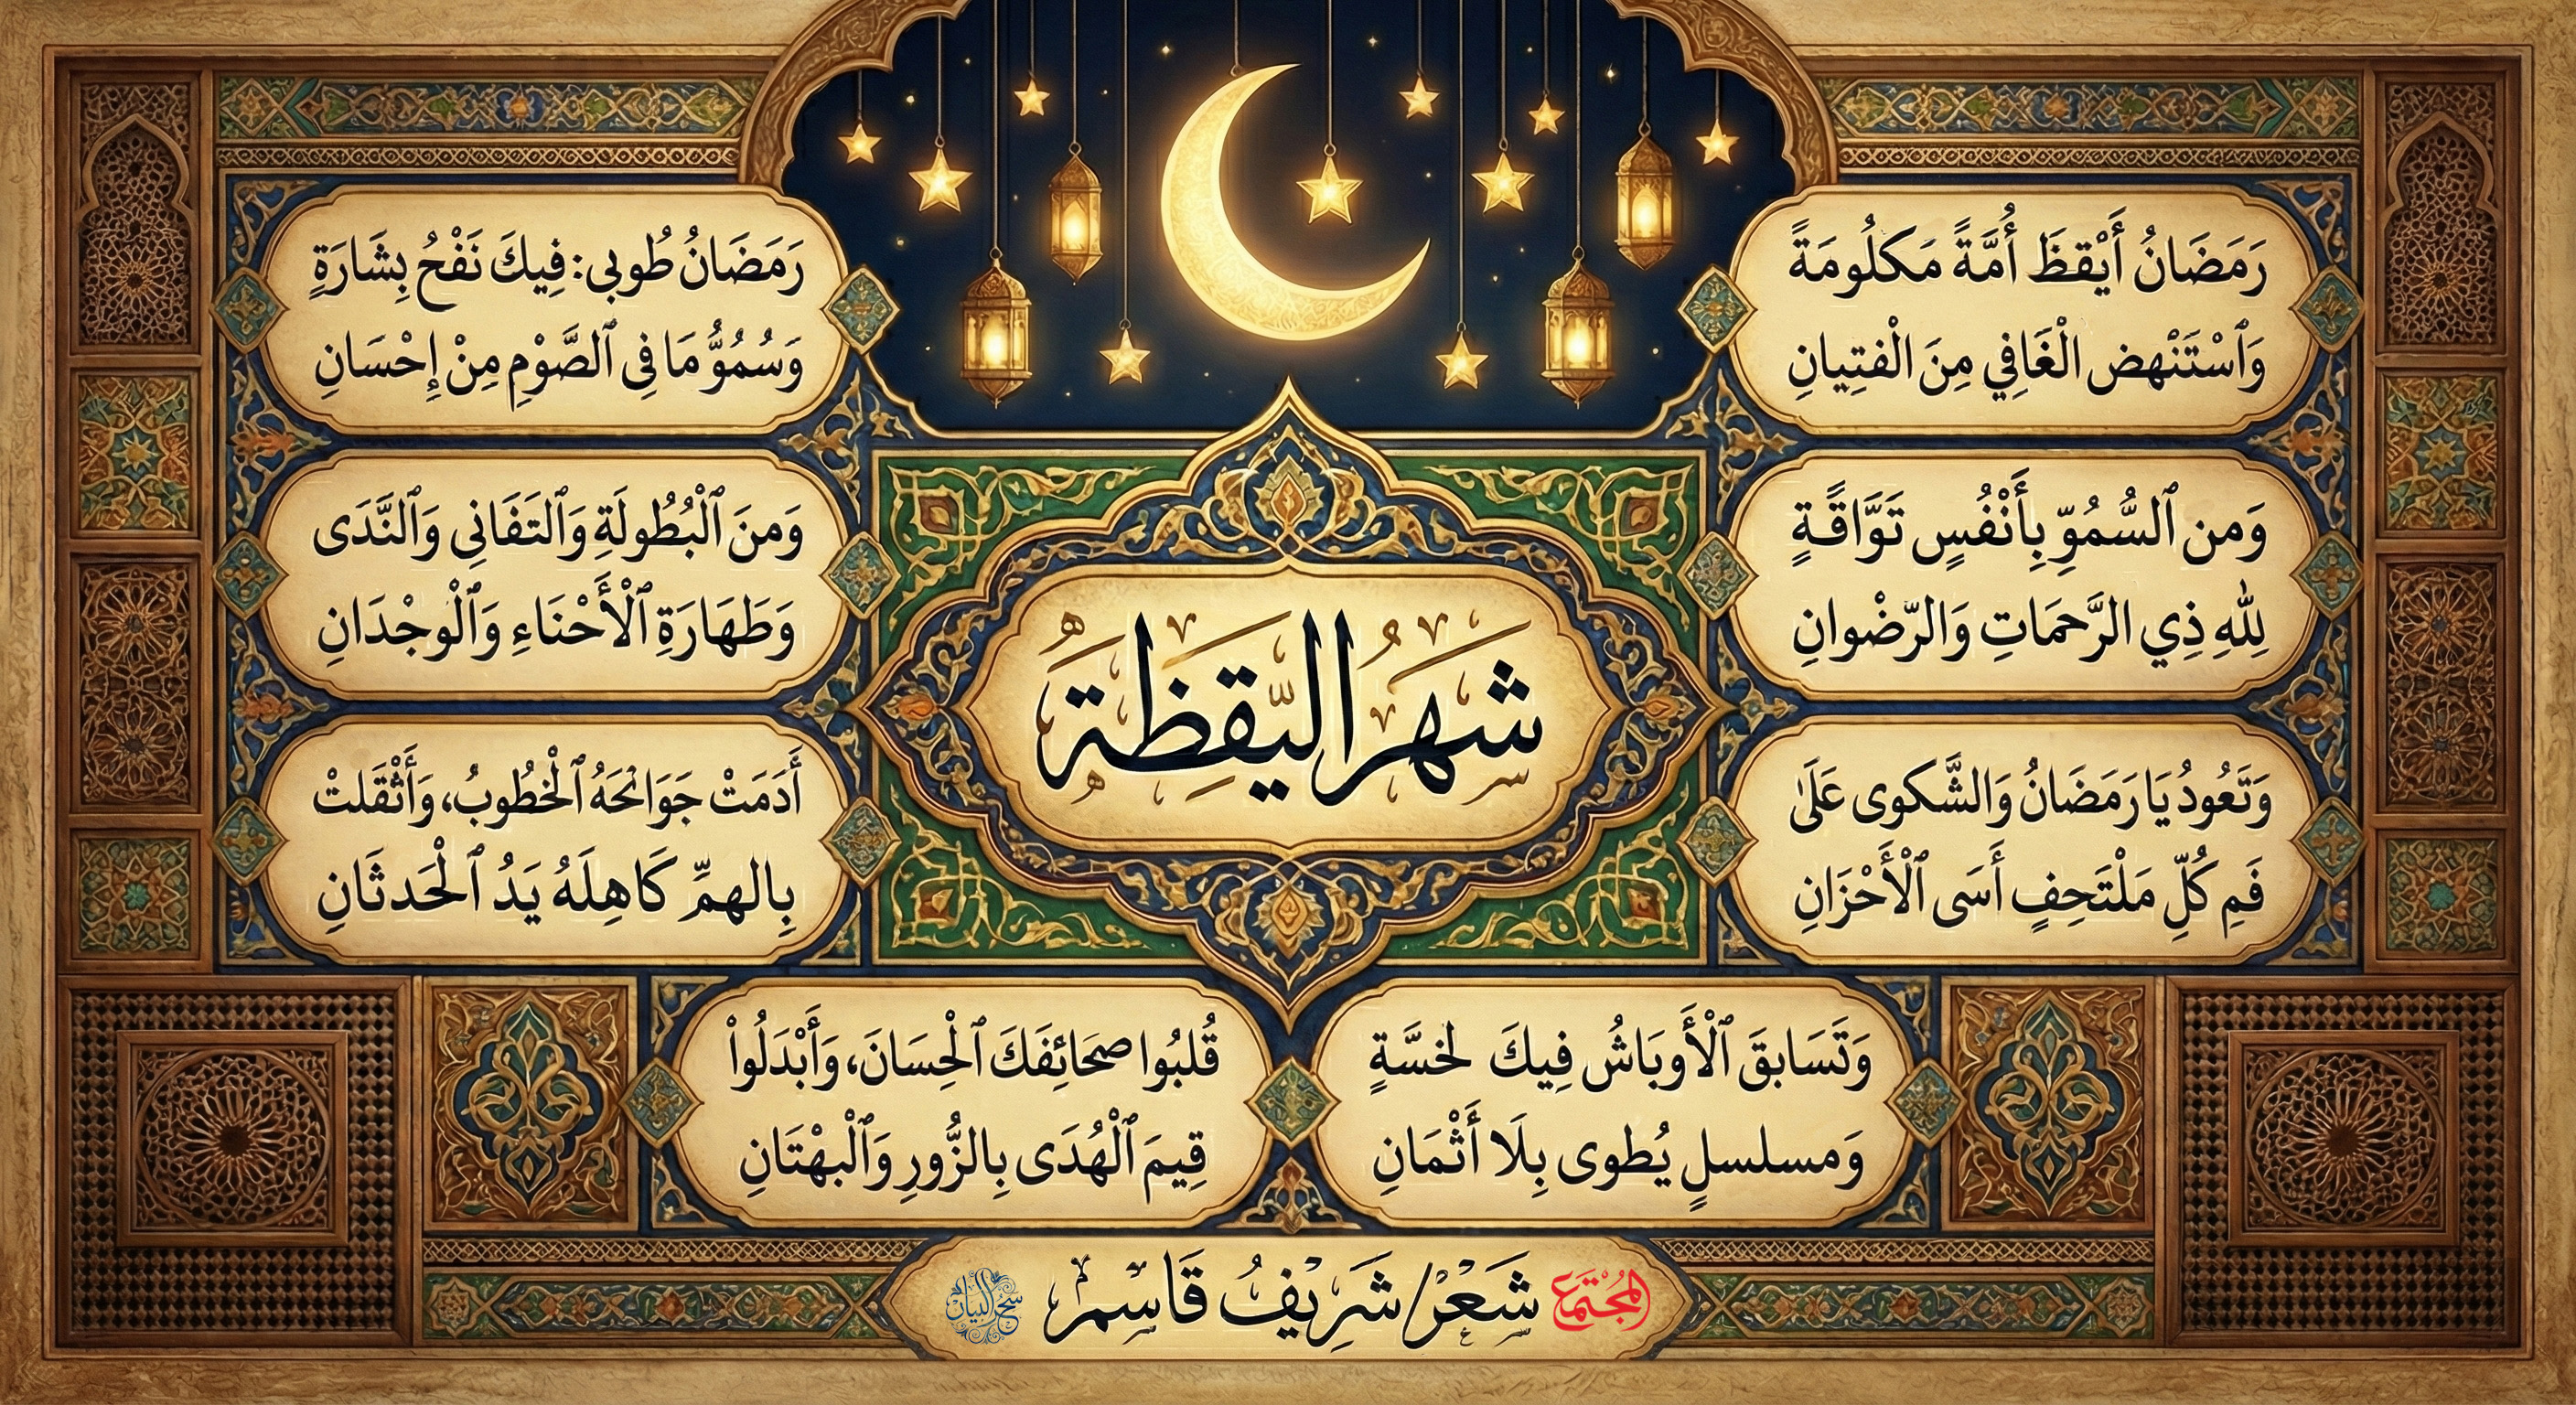 رَمَضَانُ أَيْقِظَ أُمَّةً مَكلُومَةً
وَٱسْتَنْهِض الْغَافِي مِنَ الْفتِيانِ
رَمَضَانُ طُوبى: فِيكَ نَفْحُ بِشَارَةٍ
وَسُمُوُّ مَا فِى ٱلصَّوْمِ مِنْ إِحْسَانِ
وَمن ٱلسُّمُوِّ بِأَنْفُسٍ تَوَّاقَةٍ
لِلهِ ذِي الرَّحمَاتِ وَالرِّضْوانِ
وَمنَ ٱلْبُطُولَةِ وَٱلتفَانِى وَٱلنَّدَى
وَطَهَارَةِ ٱلْأَحْنَاءِ وَٱلْوجْدَانِ
وَتَعُودُ يَا رَمَضَانُ وَالشَّكوى عَلَىٰ
فَمِ كُلِّ مَلْتَحِفٍ أَسَى ٱلْأَحْزَانِ
أَدَمَتْ جَوَانحَهُ ٱلْخطُوبُ، وَأَثْقَلتْ
بِالهمِّ كَاهِلَهُ يَدُ ٱلْحَدثَانِ
شَهرُ اليَقِظَةَ
وَتَسَابقَ ٱلْأَوبَاشُ فِيكَ لخسَّةٍ
وَمسلسلٍ يُطوى بِلَا أَثْمَانِ
قُلبُوا صحَائِفَكَ ٱلْحِسَانَ، وَأَبْدَلُواْ
قِيمَ ٱلْهُدَى بِالزُّورِ وَٱلْبهْتَانِ
المُجْتَمَع
شَعْرُ/ شَرِيفُ قَاسِم
سحر البيان